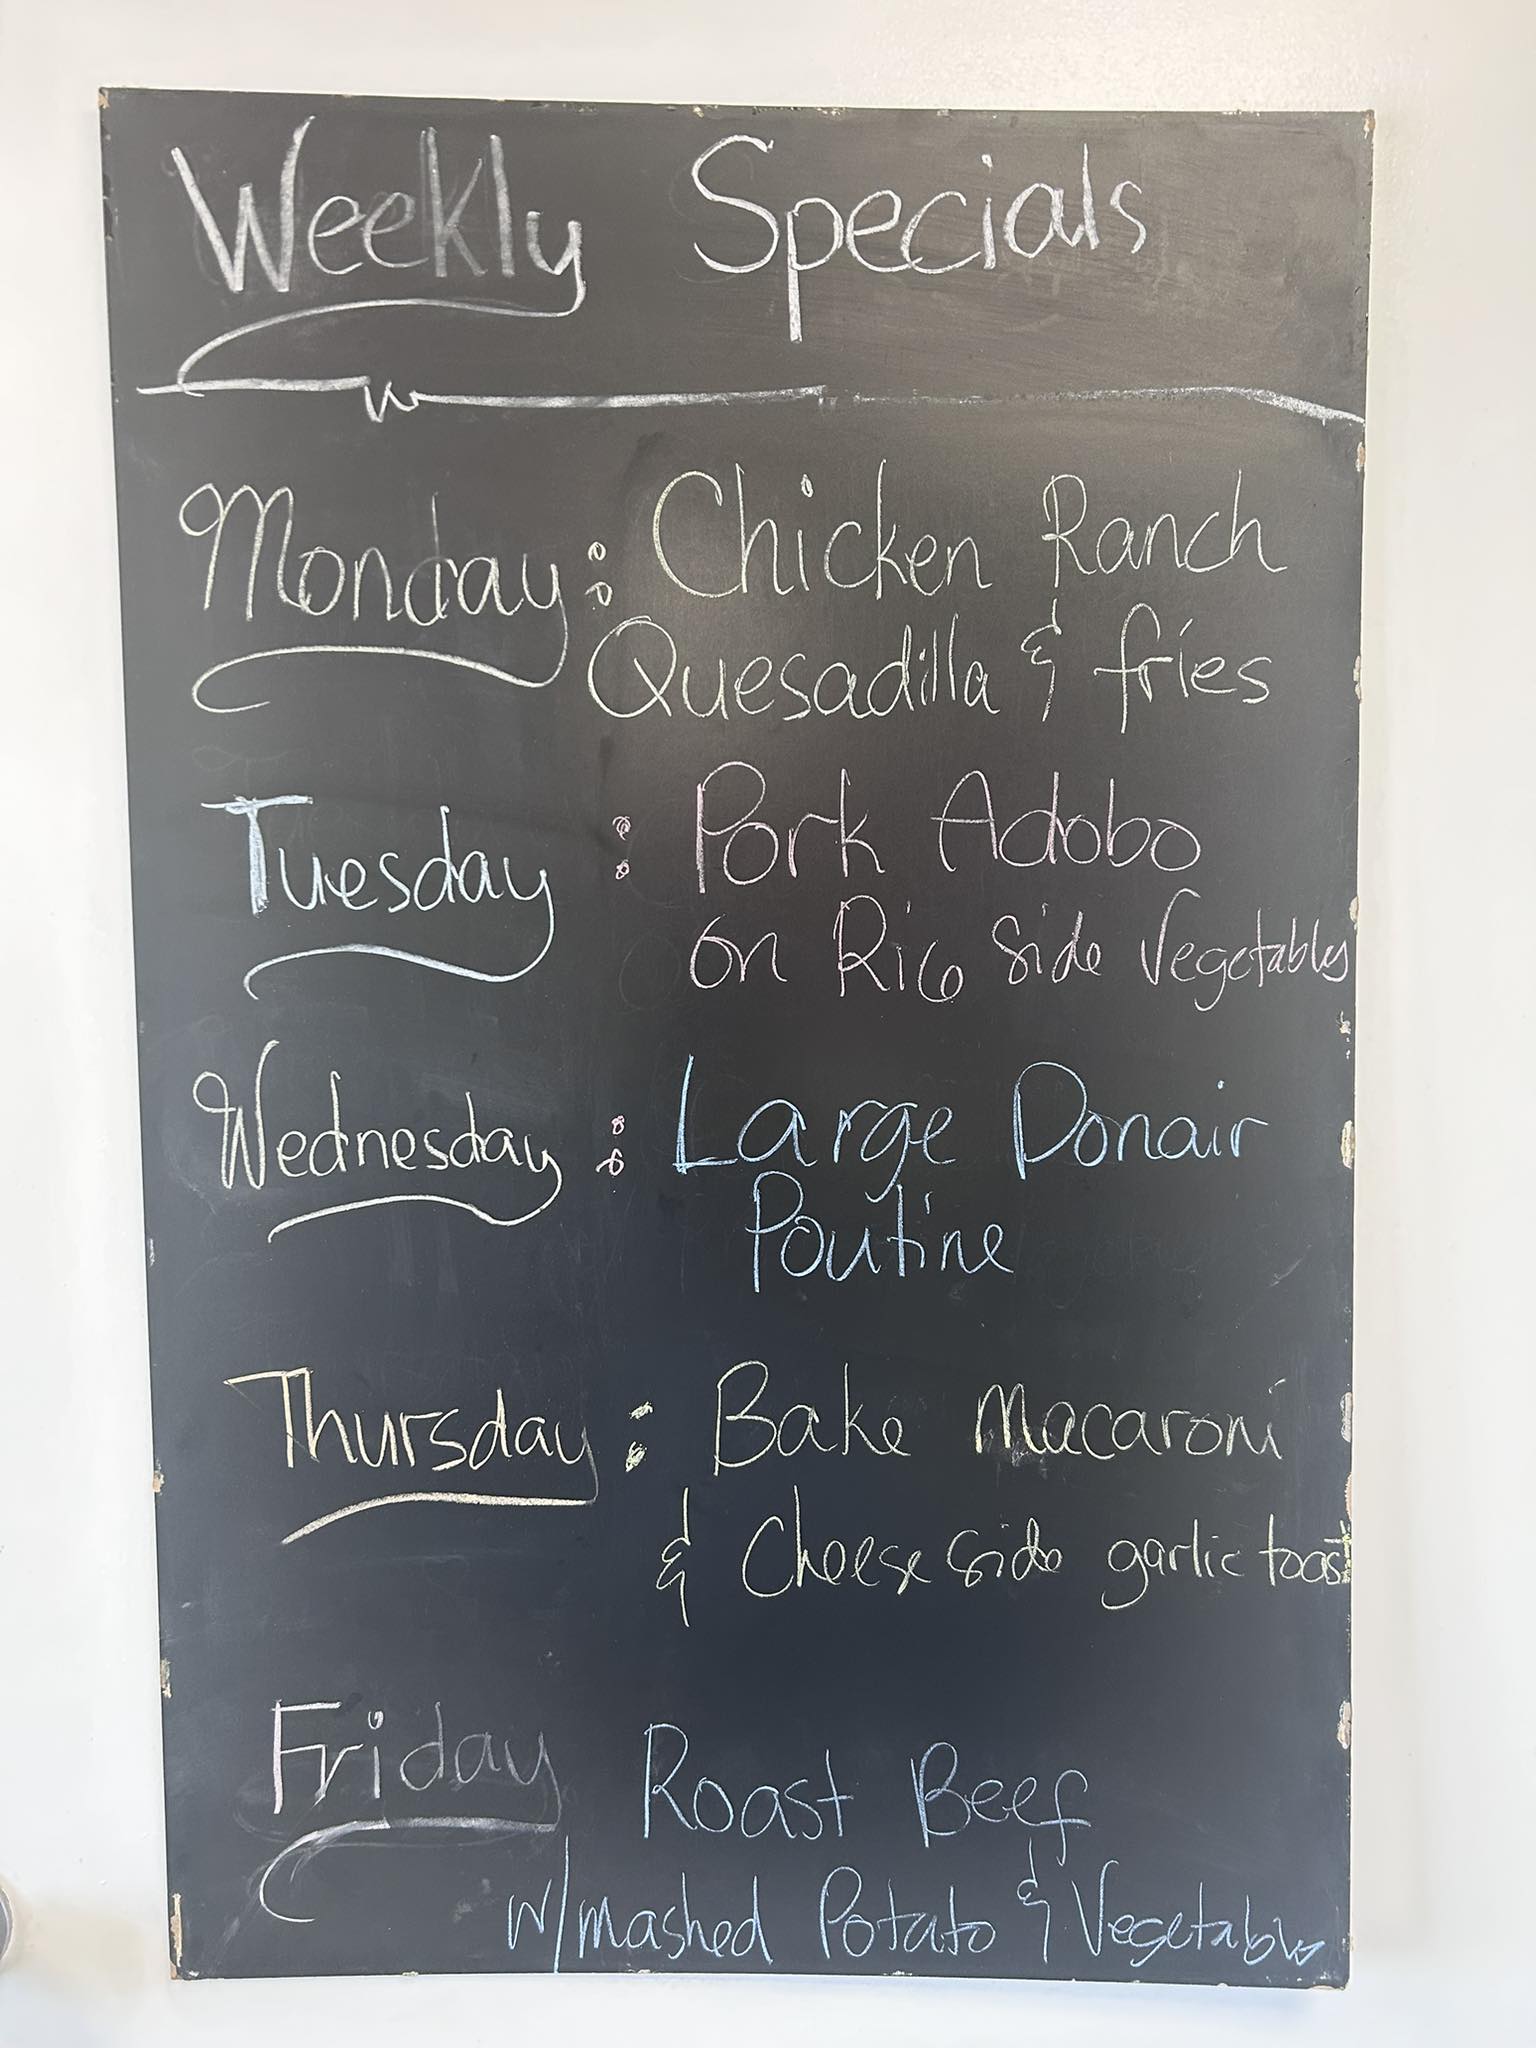 Weekly Specials
Monday: Chicken Ranch
Quesadilla & fries
Tuesday: Pork Adobo
on Rice side Vegetables
Wednesday: Large Donair
Poutine
Thursday: Bake Macaroni
& Cheese side garlic toast
Friday Roast Beef
w/mashed Potato & Vegetables